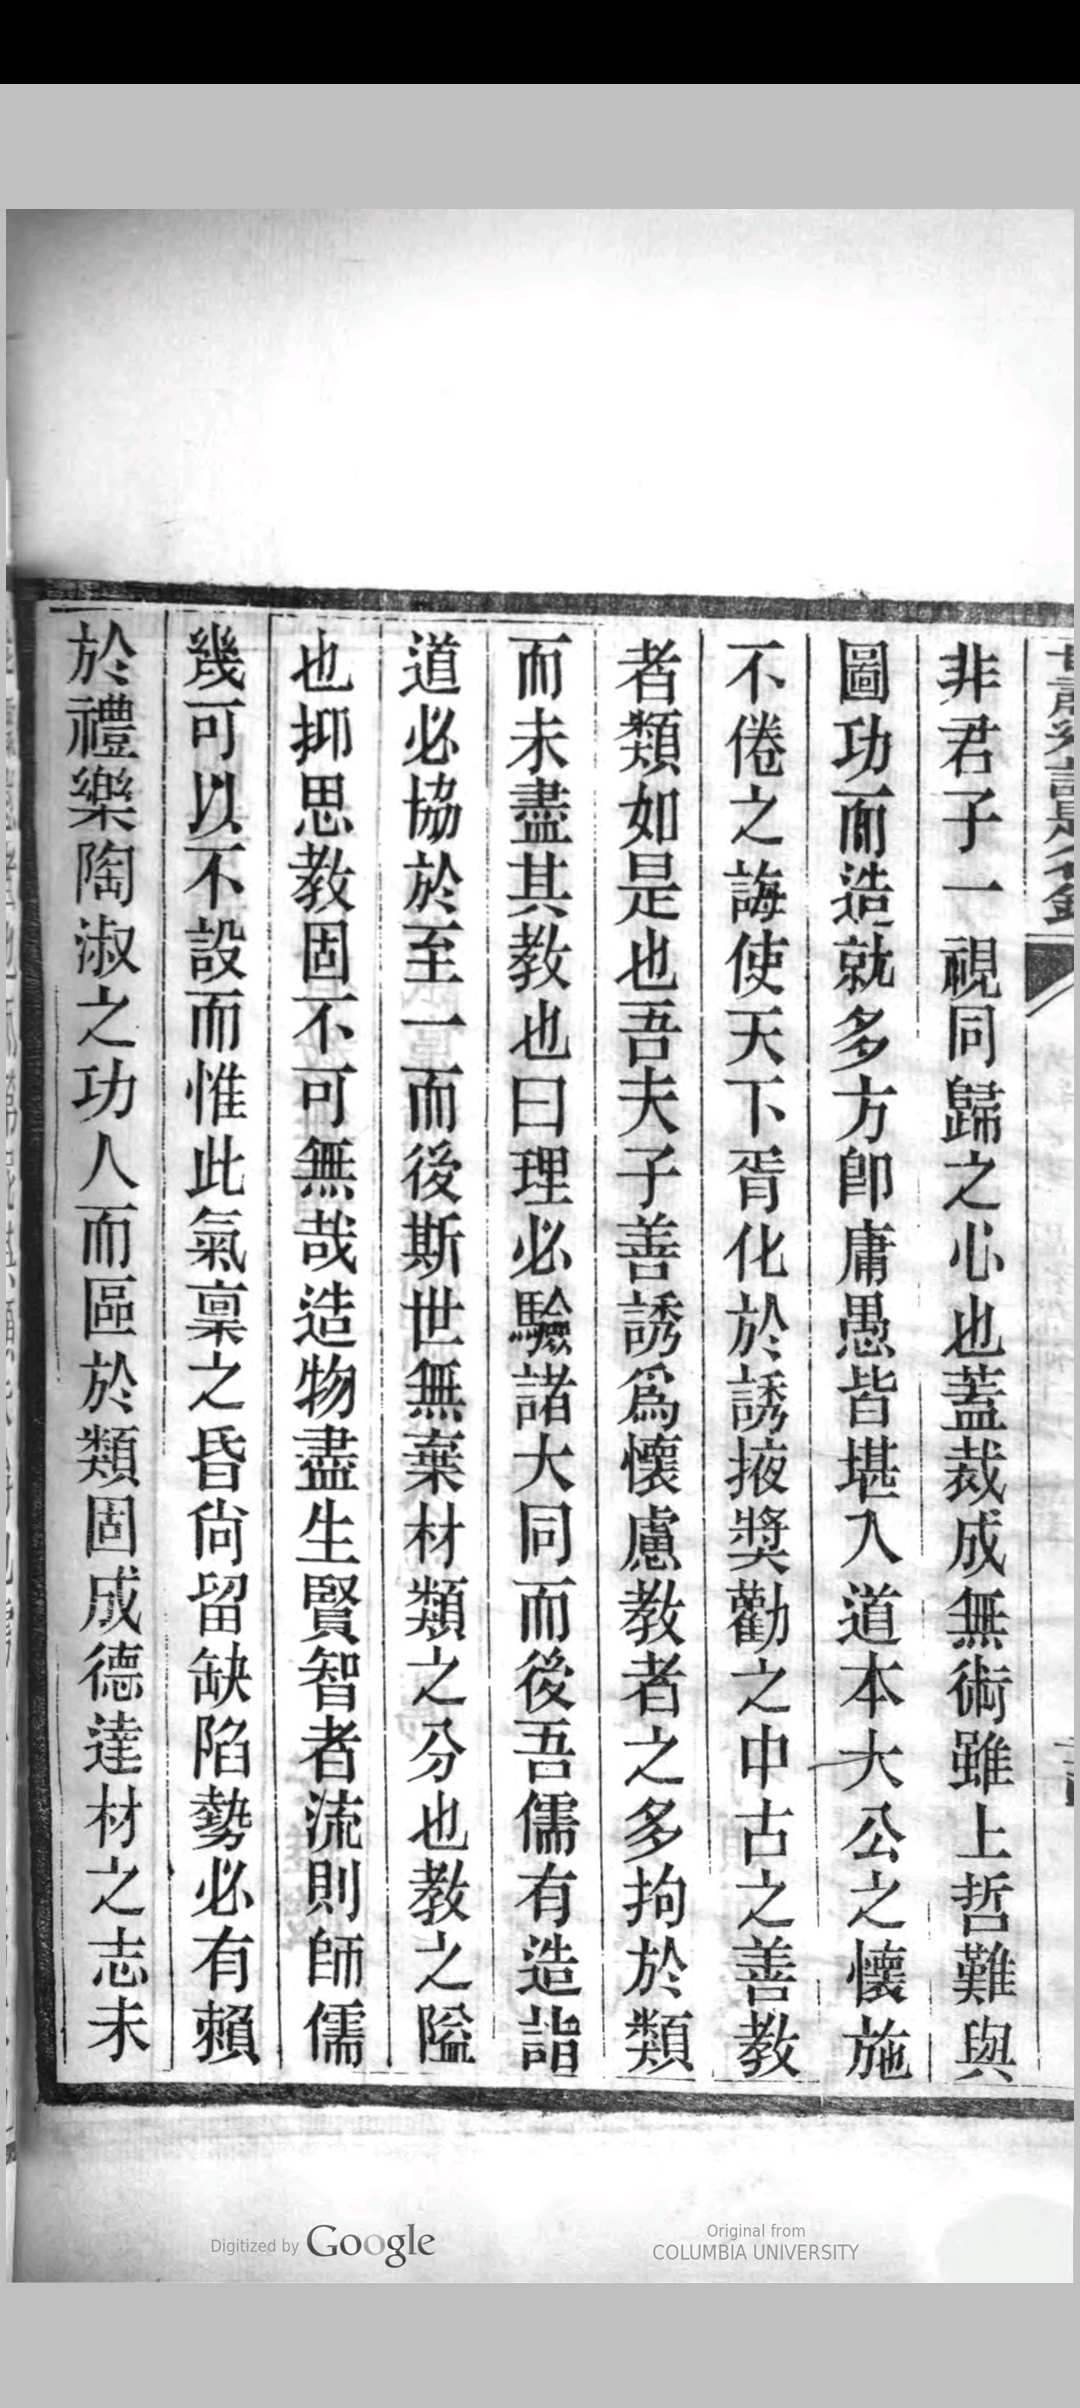 非君子一視同歸之心也蓋裁成無術雖上哲難與
圖功而造就多方卽庸愚皆堪入道本大公之懷施
不倦之誨使天下胥化於誘掖奬勸之中古之善教
者類如是也吾夫子善誘爲懷慮教者之多拘於類
而未盡其教也曰理必驗諸大同而後吾儒有造詣
道必協於至一而後斯世無棄材類之分也教之隘
也抑思教固不可無哉造物盡生賢智者流則師儒
幾可以不設而惟此氣稟之昏尙留缺陷勢必有賴
於禮樂陶淑之功人而區於類固成德達材之志未
Digitized by Google
Original from
COLUMBIA UNIVERSITY